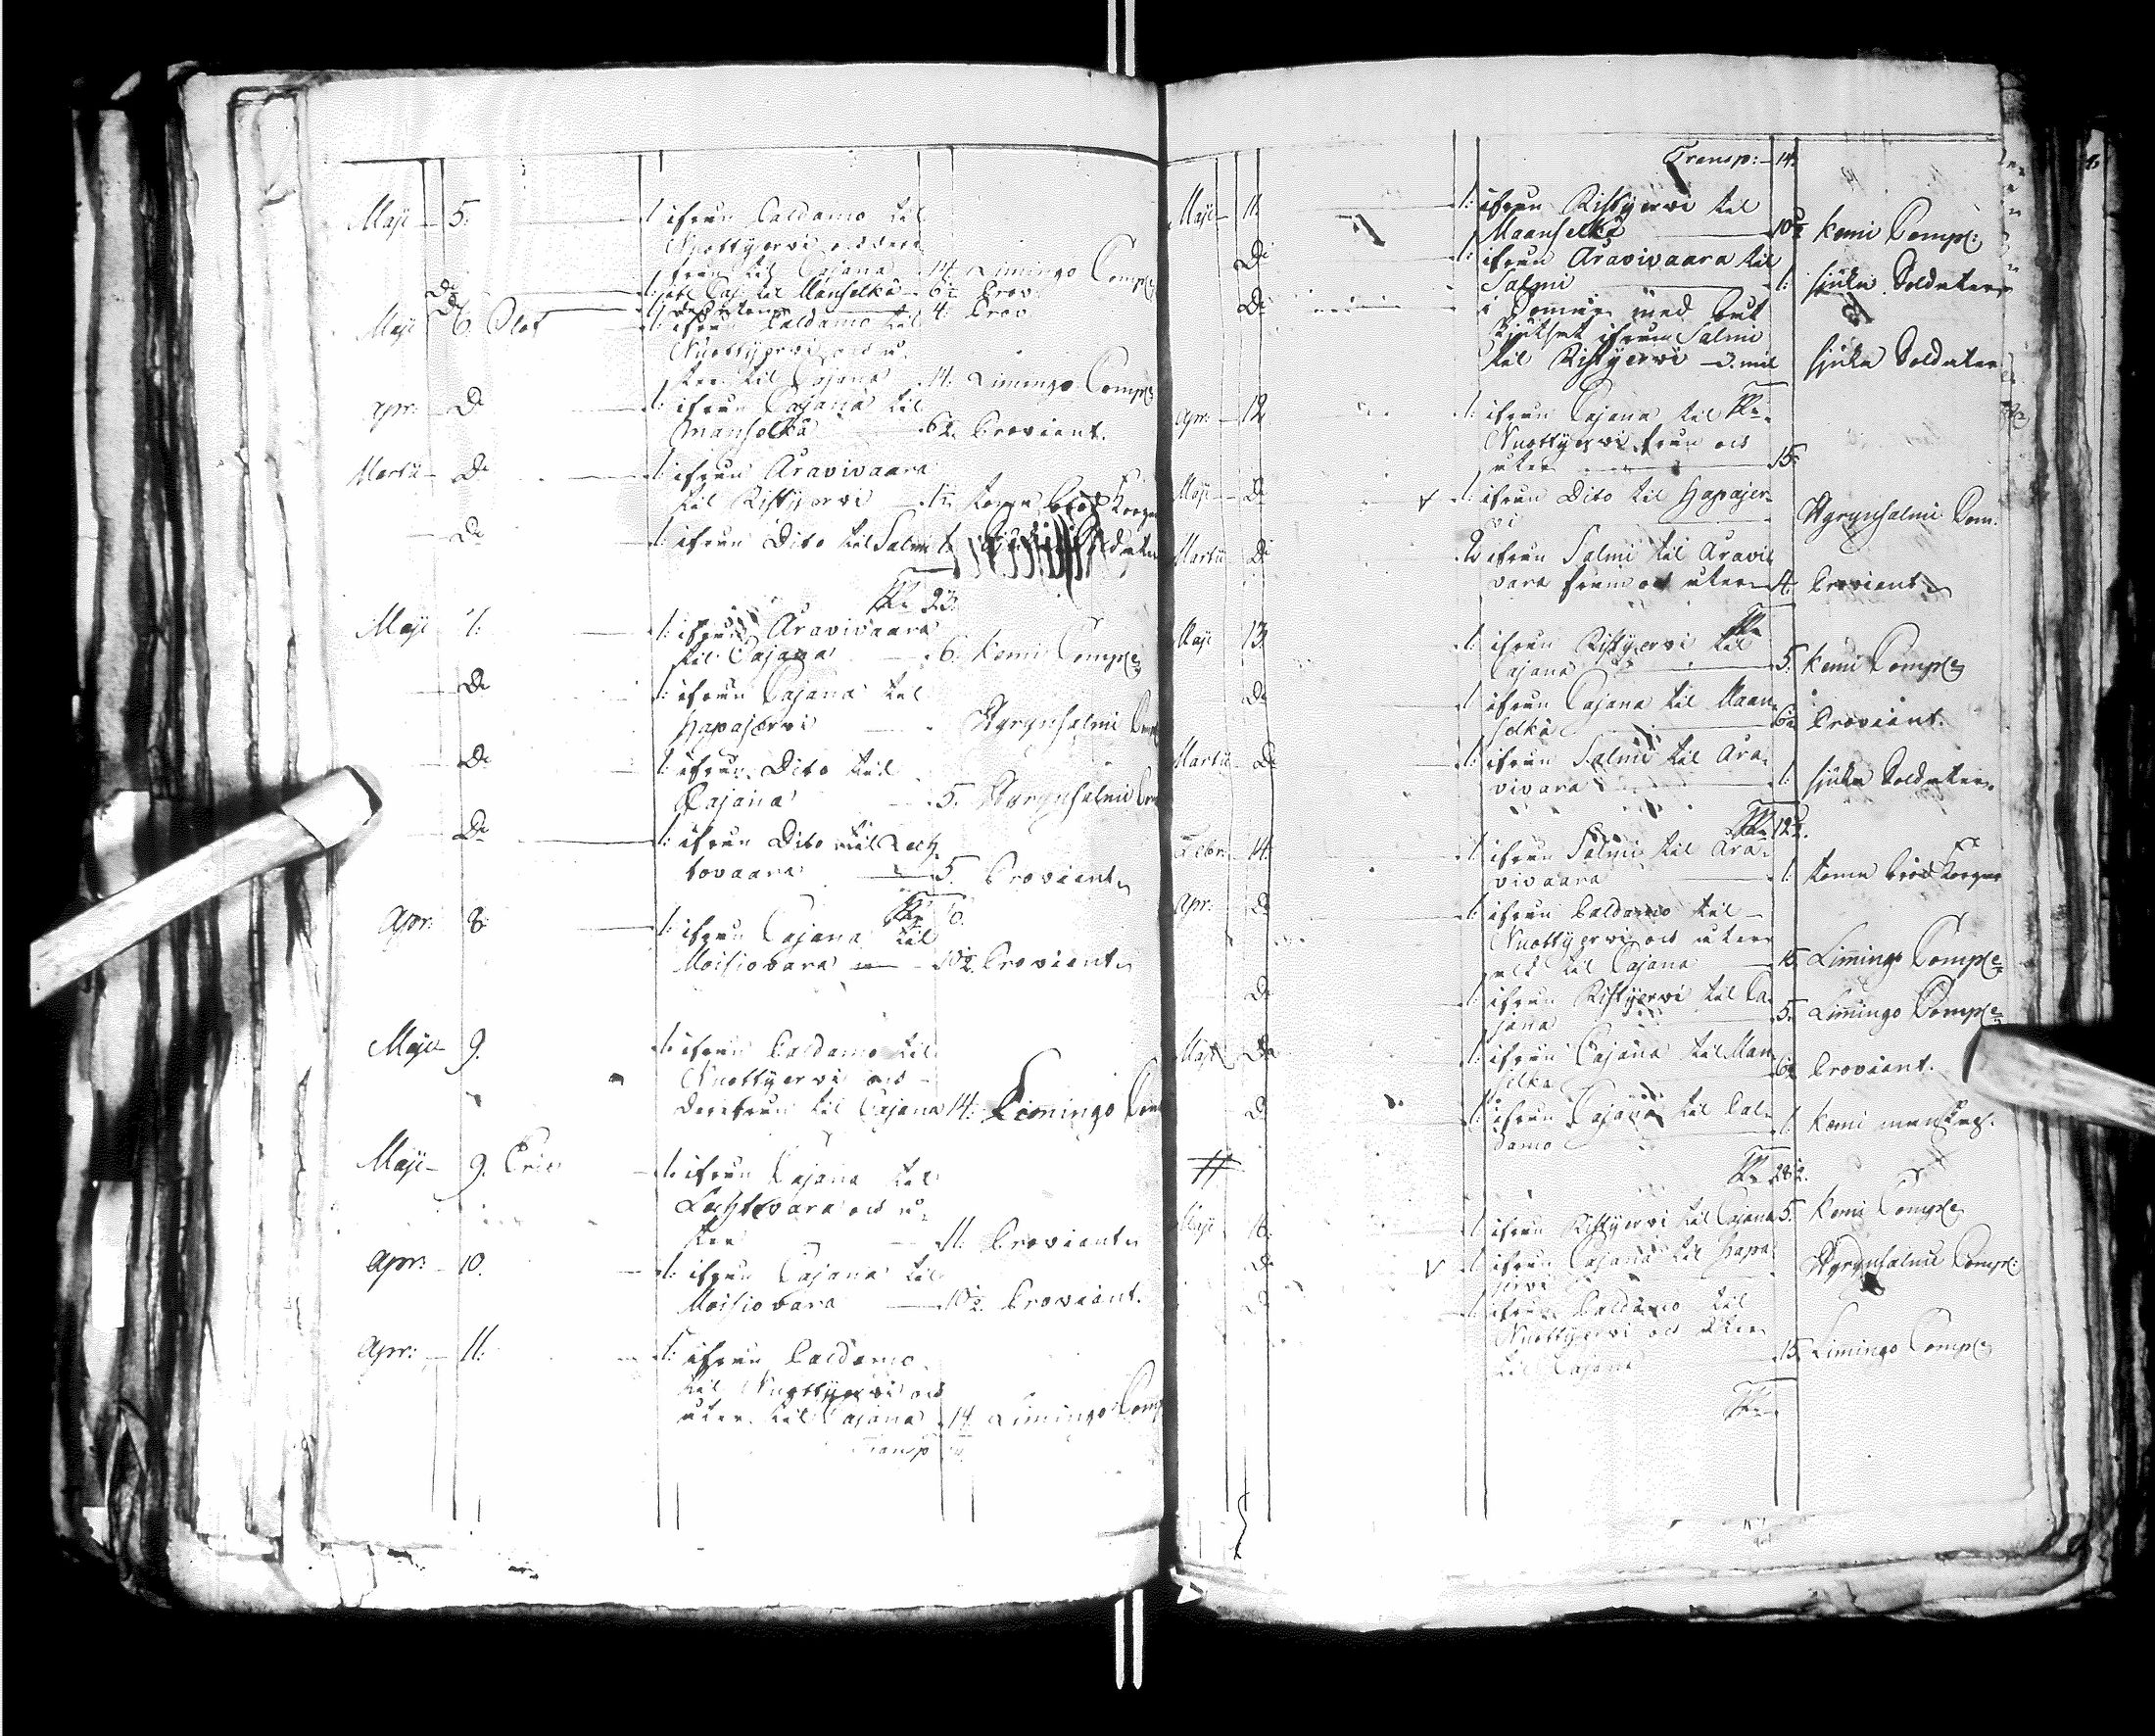 Maji 5. 1: ifrån Paldamo til
Nuottijervi och der
från til Cajana 14: Limingo Comp:
Do 1: ifrån Caj: til Mänselkä 6½ Prov
Do 4: Prov
Maji 6. Olof 1: ifrån Paldamo til
Nuottijervi och å
ter til Cajana 14: Limingo Comp:
Apr: Do 1: ifrån Cajana til
Manselkä 6½ Proviant.
Martii Do 1: ifrån Aravivaara
til Ristijervi 1½ toma brödkorgar
Do 1: ifrån Dito til Salmi 1.
Sa 23.
Maji 7. 1: ifrån Aravivaara
til Cajana 6. Kemi Comp:
Do 1: ifrån Cajana til
Hapajervi Hyrynsalmi
Do 1: ifrån Dito til
Cajana 5. Hyrynsalmi
Do 1: ifrån Dito til Lech
tovaara 5. Proviant
Apr: 8. 1: ifrån Cajana til
Moisiovara 10½ Proviant
Maji 9. 1: ifrån Paldamo til
Nuottijervi och
derifrån til Cajana 14: Limingo
Maji 9. Eric 1: ifrån Cajana til
Lechtovara och å
ter 11: Proviant
Apr: 10. 1: ifrån Cajana til
Moisiovara 10½ Proviant.
Apr: 11: 1: ifrån Paldamo
til Nuottijervi och
åter til Cajana 14 Limingo Comp
Transp
Transp: 14:
Maji 11. 1: ifrån Ristijervi til
Maanselkä 10½ Kemi Comp:
Do 1: ifrån Aravivaara til
Salmi 1: sjuka Soldater
Do i Sommar med båt
skjutsat ifrån Salmi
til Ristijervi 3. mil sjuka Soldater
Apr: 12 1: ifrån Cajana til
Nuottijervi fram och
åter 15:
Maji Do 1: ifrån Dito til Hapajer
vi Hyrynsalmi Com:
Martii Do 2 ifrån Salmi til Aravi
vara fram och åter 4. Proviant
Maji 13. 1: ifrån Ristijervi til
Cajana 5. Kemi Comp:
Do 1: ifrån Cajana til Maan
selkä 6½ Proviant.
Martii Do 1: ifrån Salmi til Ara
vivara 1: sjuka Soldater.
Sa 12½.
Febr: 14. 1: ifrån Salmi til Ara
vivaara 1: toma brödkorgar
Apr: Do 1: ifrån Paldamo til
Nuottijervi och åter
til Cajana 15. Limingo Comp:
Do 1: ifrån Ristijervi til Ca
jana 5. Limingo Comp:
Maji Do 1: ifrån Cajana til Man
selkä 6½ Proviant.
Do 1: ifrån Cajana til Pal
damo 1. Kemi manskap.
Sa 28½.
Maji 16. 1: ifrån Ristijervi til Cajana 5. Kemi Comp:
Do 1: ifrån Cajana til Hapa
jervi Hyrynsalmi Comp:
Do 1: ifrån Paldamo til
Nuottijervi och åter
til Cajana 15. Limingo Comp:
Sa